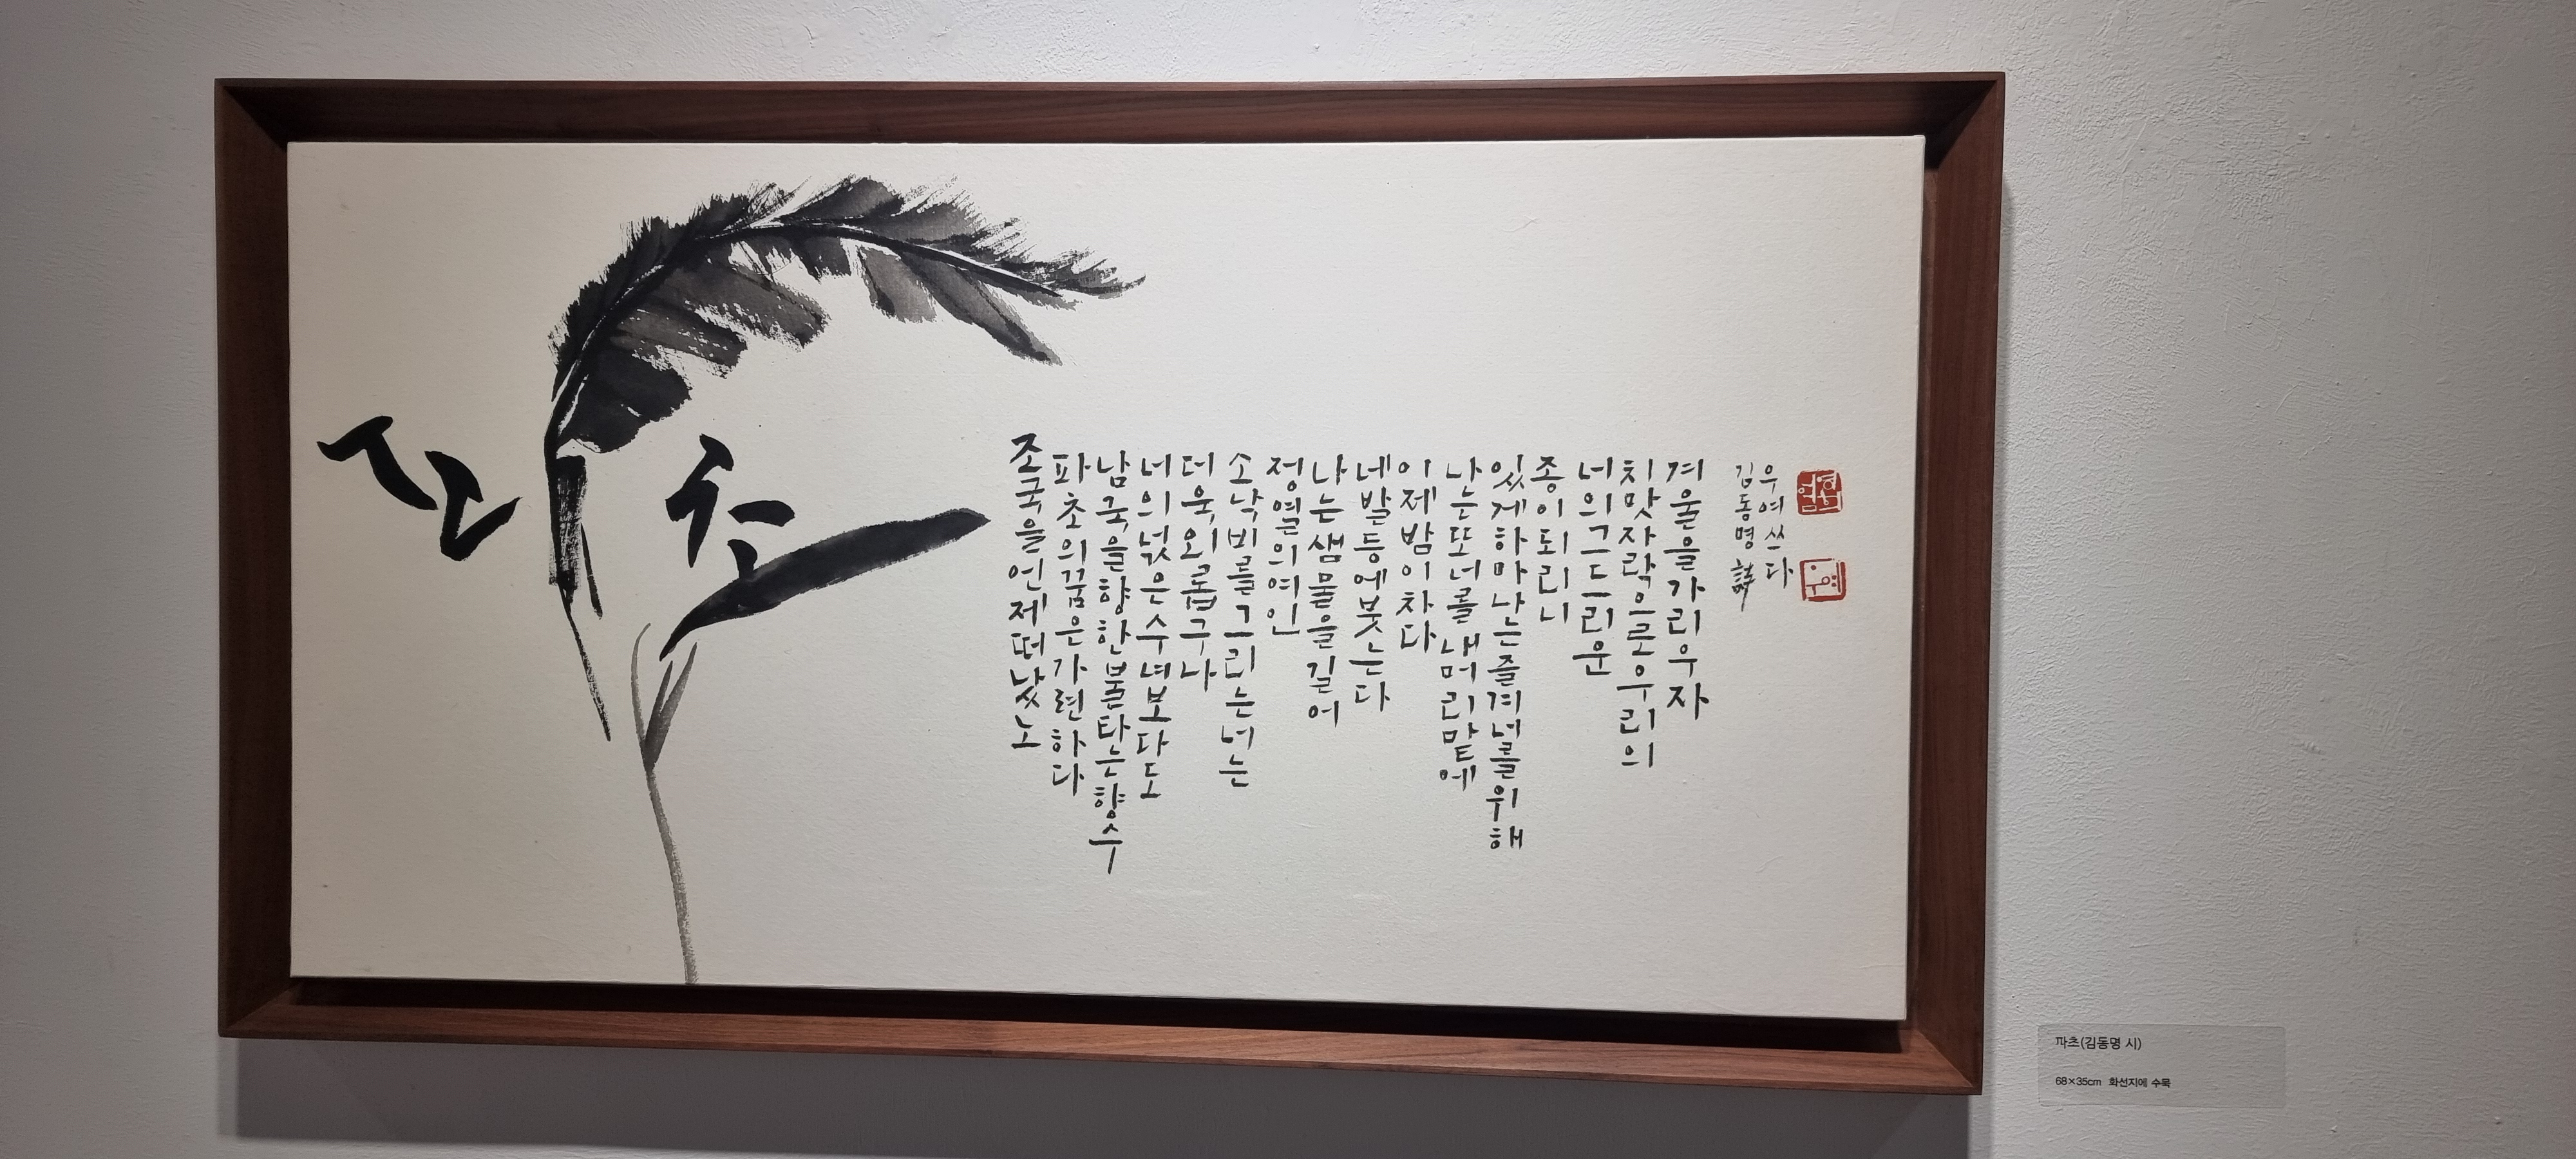 파초
조국을언제떠났노
파초의꿈은가련하다
남국을향한불타는향수
너의넋은수녀보다도
더욱외롭구나
소낙비를그리는너는
정열의여인
나는샘물을길어
네발등에붓는다
이제밤이차다
나는또너를내머리맡에
있게하마나는즐겨너를위해
종이되리니
너의그드리운
치맛자락으로우리의
겨울을가리우자
김동명 詩
우여쓰다
파초(김동명 시)
68×35cm 화선지에 수묵